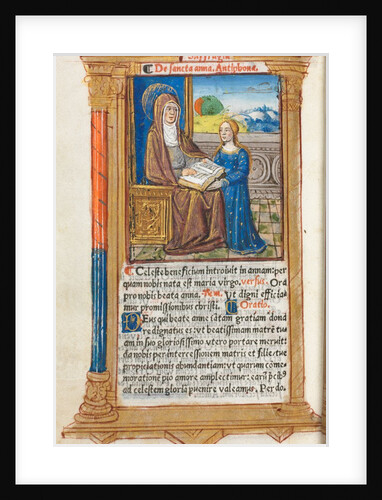 Suffragia
De sancta anna. Antiphona.
Celeste beneficium introivit in annam: per
quam nobis nata est maria virgo. versus. Ora
pro nobis beata anna. Ut digni efficia
mur promissionibus christi. Oratio.
Deus qui beate anne tãtam gratiam dona
re dignatus es ut beatissimam matrẽ tu
am in suo gloriosissimo utero portare meruit:
da nobis per intercessionem matris et filie: tue
propiciationis abundantiam: ut quarum com
moratione pio amore amplectimur: earũ p̃cib⁹
ad celestem gloriã p̃uenire valeamus. Per do.